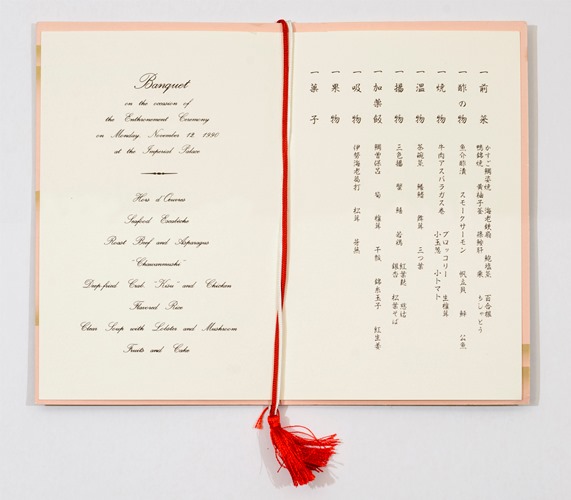 Banquet
on the occasion of
the Enthronement Ceremony
on Monday, November 12, 1990
at the Imperial Palace
Hors d'Oeuvres
Seafood Escabèche
Roast Beef and Asparagus
"Chawanmushi"
Deep-fried Crab, "Kisu" and Chicken
Flavored Rice
Clear Soup with Lobster and Mushroom
Fruits and Cake
一 前菜
かすご鯛姿焼 海老鉄扇 鮑塩蒸 百合根
鴨錦焼 黄柚子釜 栗 ちしゃとう
一 酢の物 魚介酢漬 スモークサーモン 帆立貝 公魚
一 焼物 牛肉アスパラガス巻
ブロッコリー 生椎茸
小玉葱 小トマト
一 温物 茶碗蒸 舞茸 三つ葉
一 揚物 三色揚 蟹 鱚 若鶏
紅葉麩 慈姑
銀杏 松葉そば
一 加薬飯 鯛曽保呂 筍 椎茸 干瓢 錦糸玉子 紅生姜
一 吸物 伊勢海老葛打 松茸 芽蕪
一 果物
一 菓子